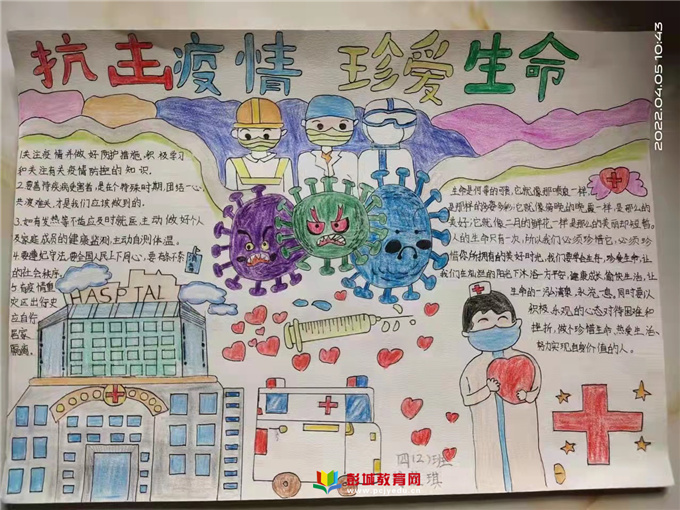 抗击疫情 珍爱生命
2022.04.05 10:43
1.关注疫情并做好防护措施,积极学习
和关注有关疫情防控的知识。
2.要善待疾病受害者,是在个特殊时期,团结一心,
共度难关,才是我们应该做的。
3.如有发热等不适应及时就医,主动做好个人
及家庭成员的健康监测,主动自测体温。
4.要遵纪守法,要全国人民上下同心,要
的社会秩序。
5.有疫情重
灾区出行史
应自行
居家
隔离。
HASPTAL
生命是何等的强,它就像那喷泉一样,
是那样的多姿多彩;它就像傍晚的晚霞一样,是那么的
美好;它就像二月的鲜花一样是那么的美丽却短暂。
人的生命只有一次,所以我们必须珍惜它,必须珍
惜你所拥有的美好时光,我们要学会生存,珍爱生命,让
我们在灿烂的阳光下沐浴,力平安,健康成长,愉快生活,让
生命的一泓清泉,永流不息。同时要以
积极、乐观的心态对待困难和
挫折,做个珍惜生命,热爱生活、
努力实现自身价值的人。
四(2)班
琪
彭城教育网
www.pcjyedu.cn